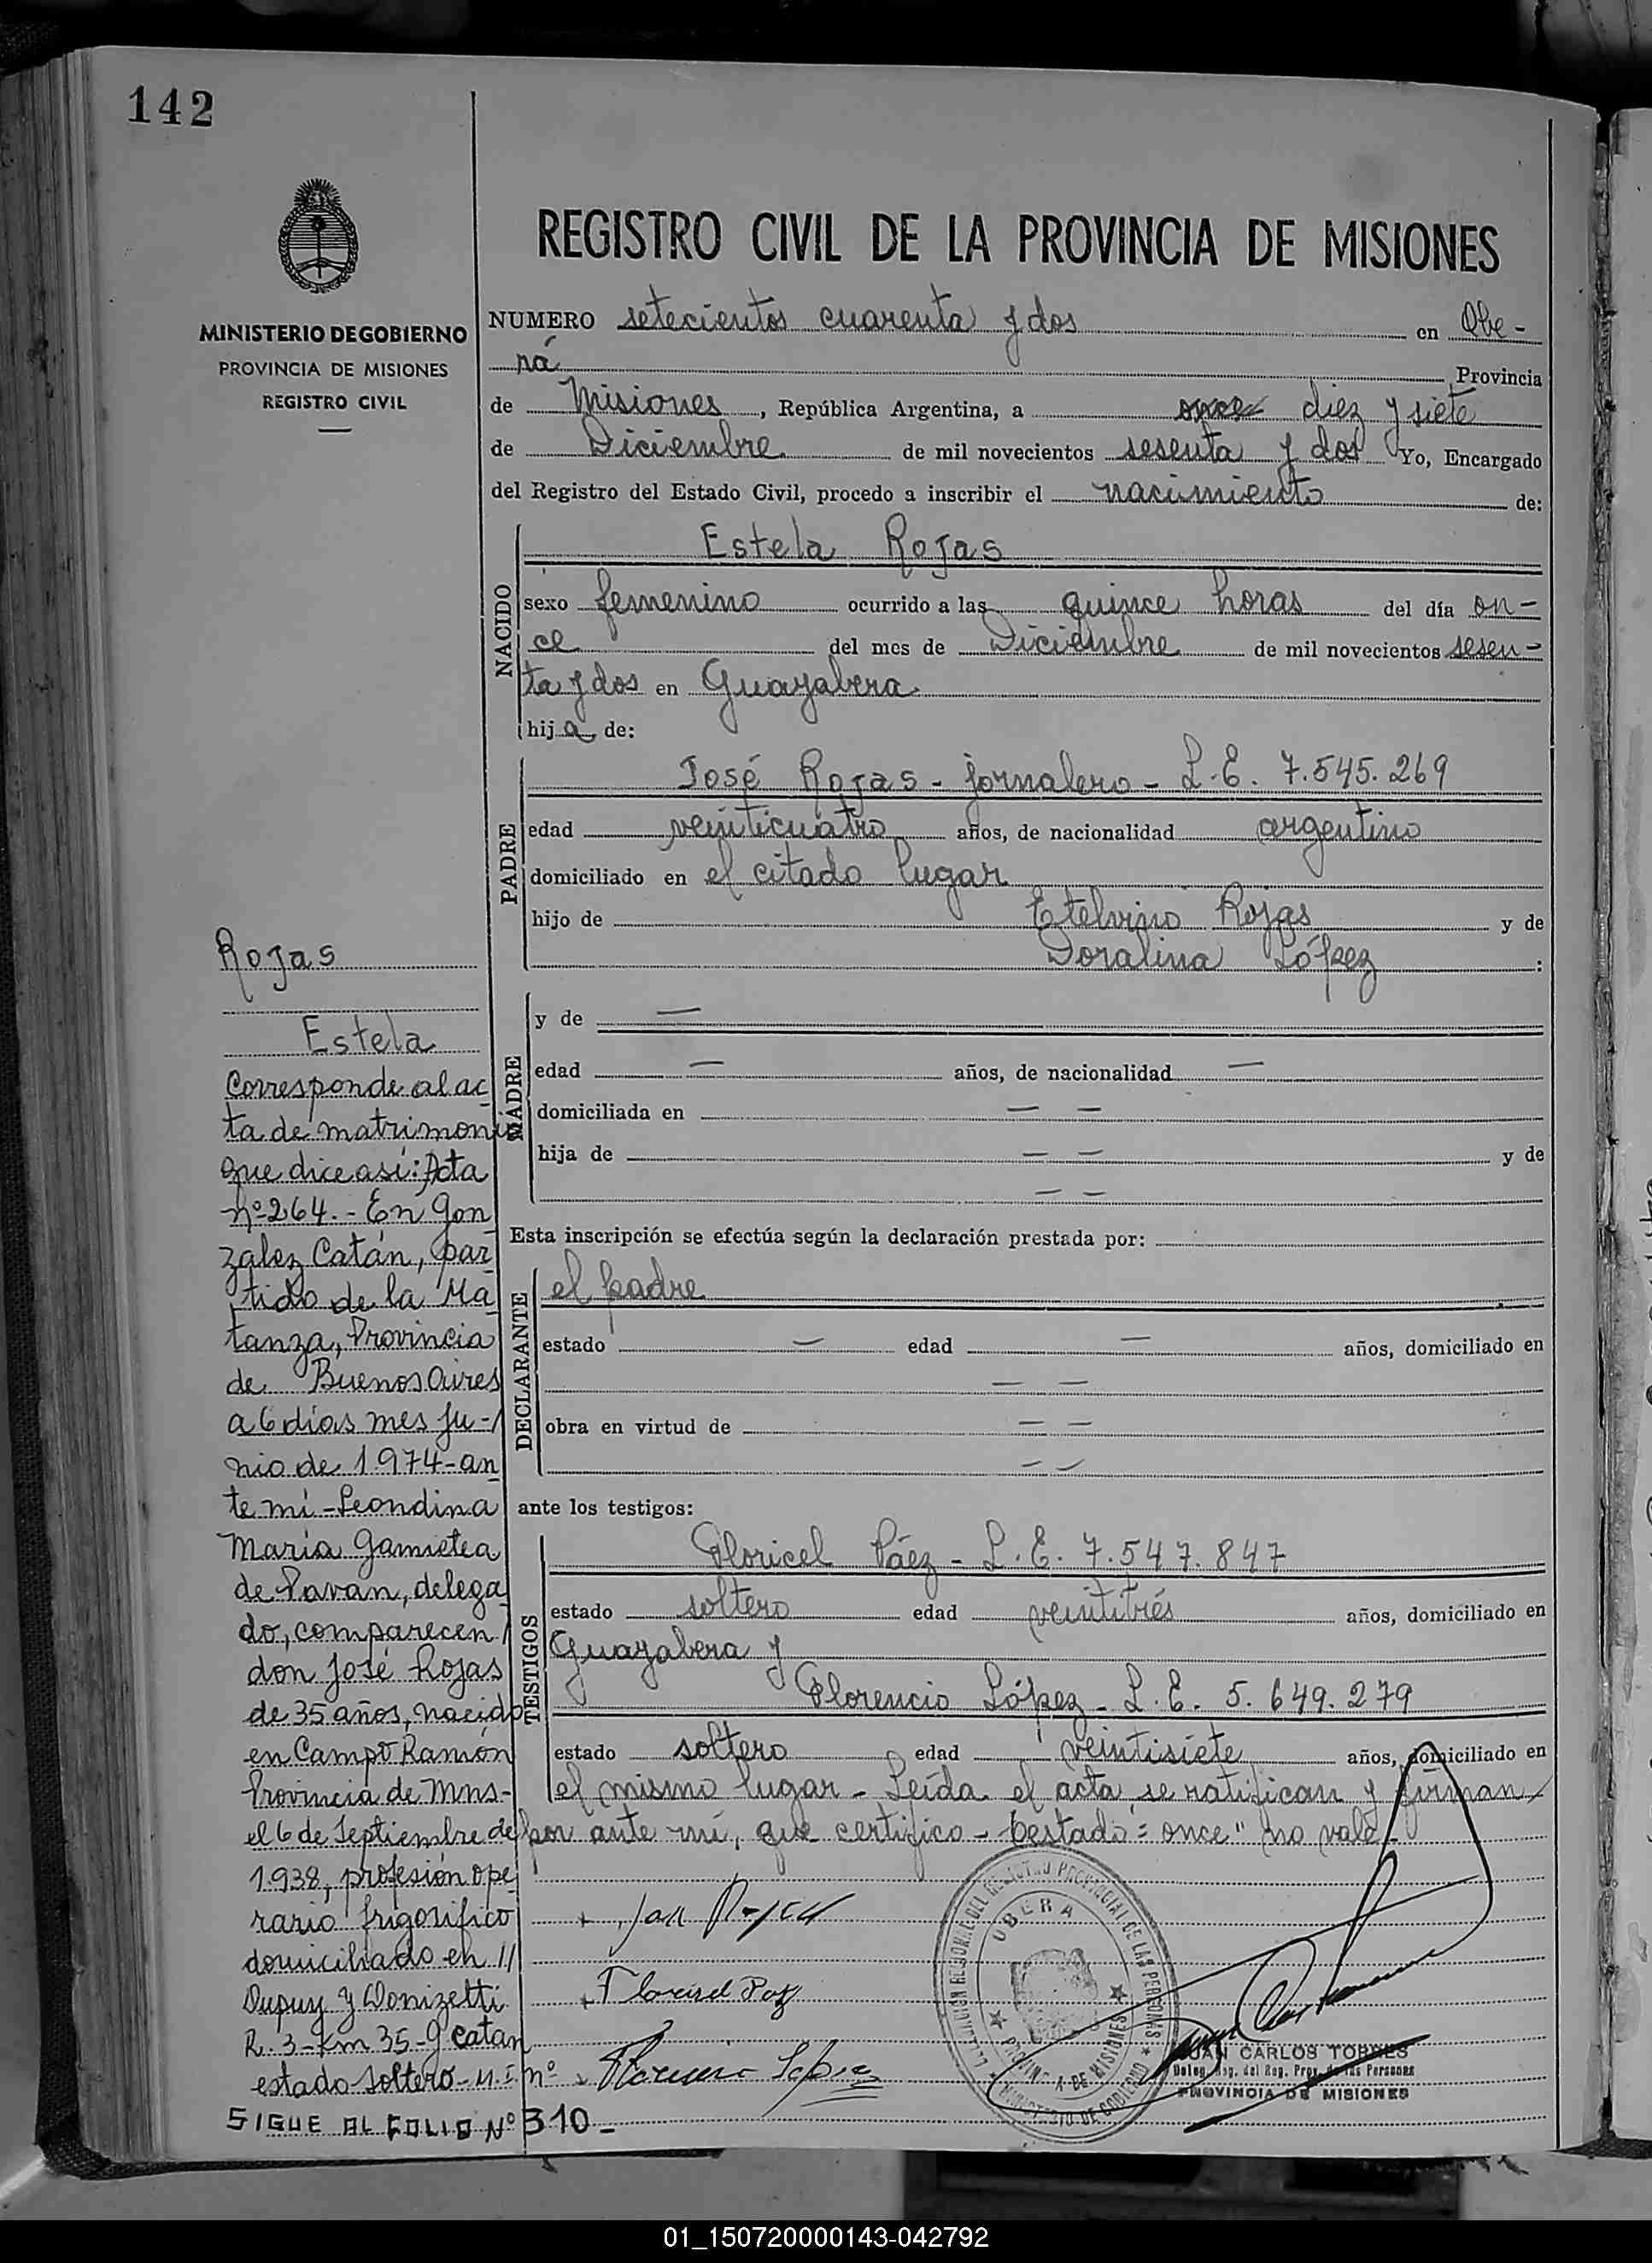 142
MINISTERIO DE GOBIERNO
PROVINCIA DE MISIONES
REGISTRO CIVIL
REGISTRO CIVIL DE LA PROVINCIA DE MISIONES
NUMERO setecientos cuarenta y dos en Obe-
rá Provincia
de Misiones, República Argentina, a once diez y siete
de Diciembre de mil novecientos sesenta y dos Yo, Encargado
del Registro del Estado Civil, procedo a inscribir el nacimiento de:
NACIDO
Estela Rojas
sexo femenino ocurrido a las quince horas del día on-
ce del mes de Diciembre de mil novecientos sesen-
ta y dos en Guayabera
hija de:
PADRE
José Rojas - jornalero - L.E. 7.545.269
edad veinticuatro años, de nacionalidad argentino
domiciliado en el citado lugar
hijo de Etelvino Rojas y de
Doralina López :
MADRE
y de —
edad — años, de nacionalidad —
domiciliada en — —
hija de — — y de
— —
Esta inscripción se efectúa según la declaración prestada por:
DECLARANTE
el padre
estado — edad — años, domiciliado en
— —
obra en virtud de — —
— —
ante los testigos:
TESTIGOS
Floricel Páez - L.E. 7.547.847
estado soltero edad veintitrés años, domiciliado en
Guayabera y
Florencio López - L.E. 5.649.279
estado soltero edad veintisiete años, domiciliado en
el mismo lugar - Leída el acta se ratifican y firman
por ante mí, que certifico - testado: "once" no vale -
Floricel Paz
Florencio López
OBERA
PROVINCIA DE MISIONES
MINISTERIO DE GOBIERNO
JUAN CARLOS TORRES
Deleg. Reg. del Reg. Prov. de las Personas
PROVINCIA DE MISIONES
Rojas
Estela
Corresponde al ac
ta de matrimonio
que dice así: Acta
nº 264.- En Gon
zalez Catán, par
tido de la Ma
tanza, Provincia
de Buenos Aires
a 6 días mes Ju-
nio de 1974 - an
te mí - Leondina
María Gamietea
de Pavan, delega
do, comparecen
don José Rojas
de 35 años, nacido
en Campo Ramón
Provincia de Mns-
el 6 de Septiembre de
1938, profesión ope
rario frigorífico
domiciliado en //
Dupuy y Donizetti
R. 3 - Km 35 - G Catan
estado soltero - M.I nº
SIGUE AL FOLIO Nº 310 -
01_150720000143-042792